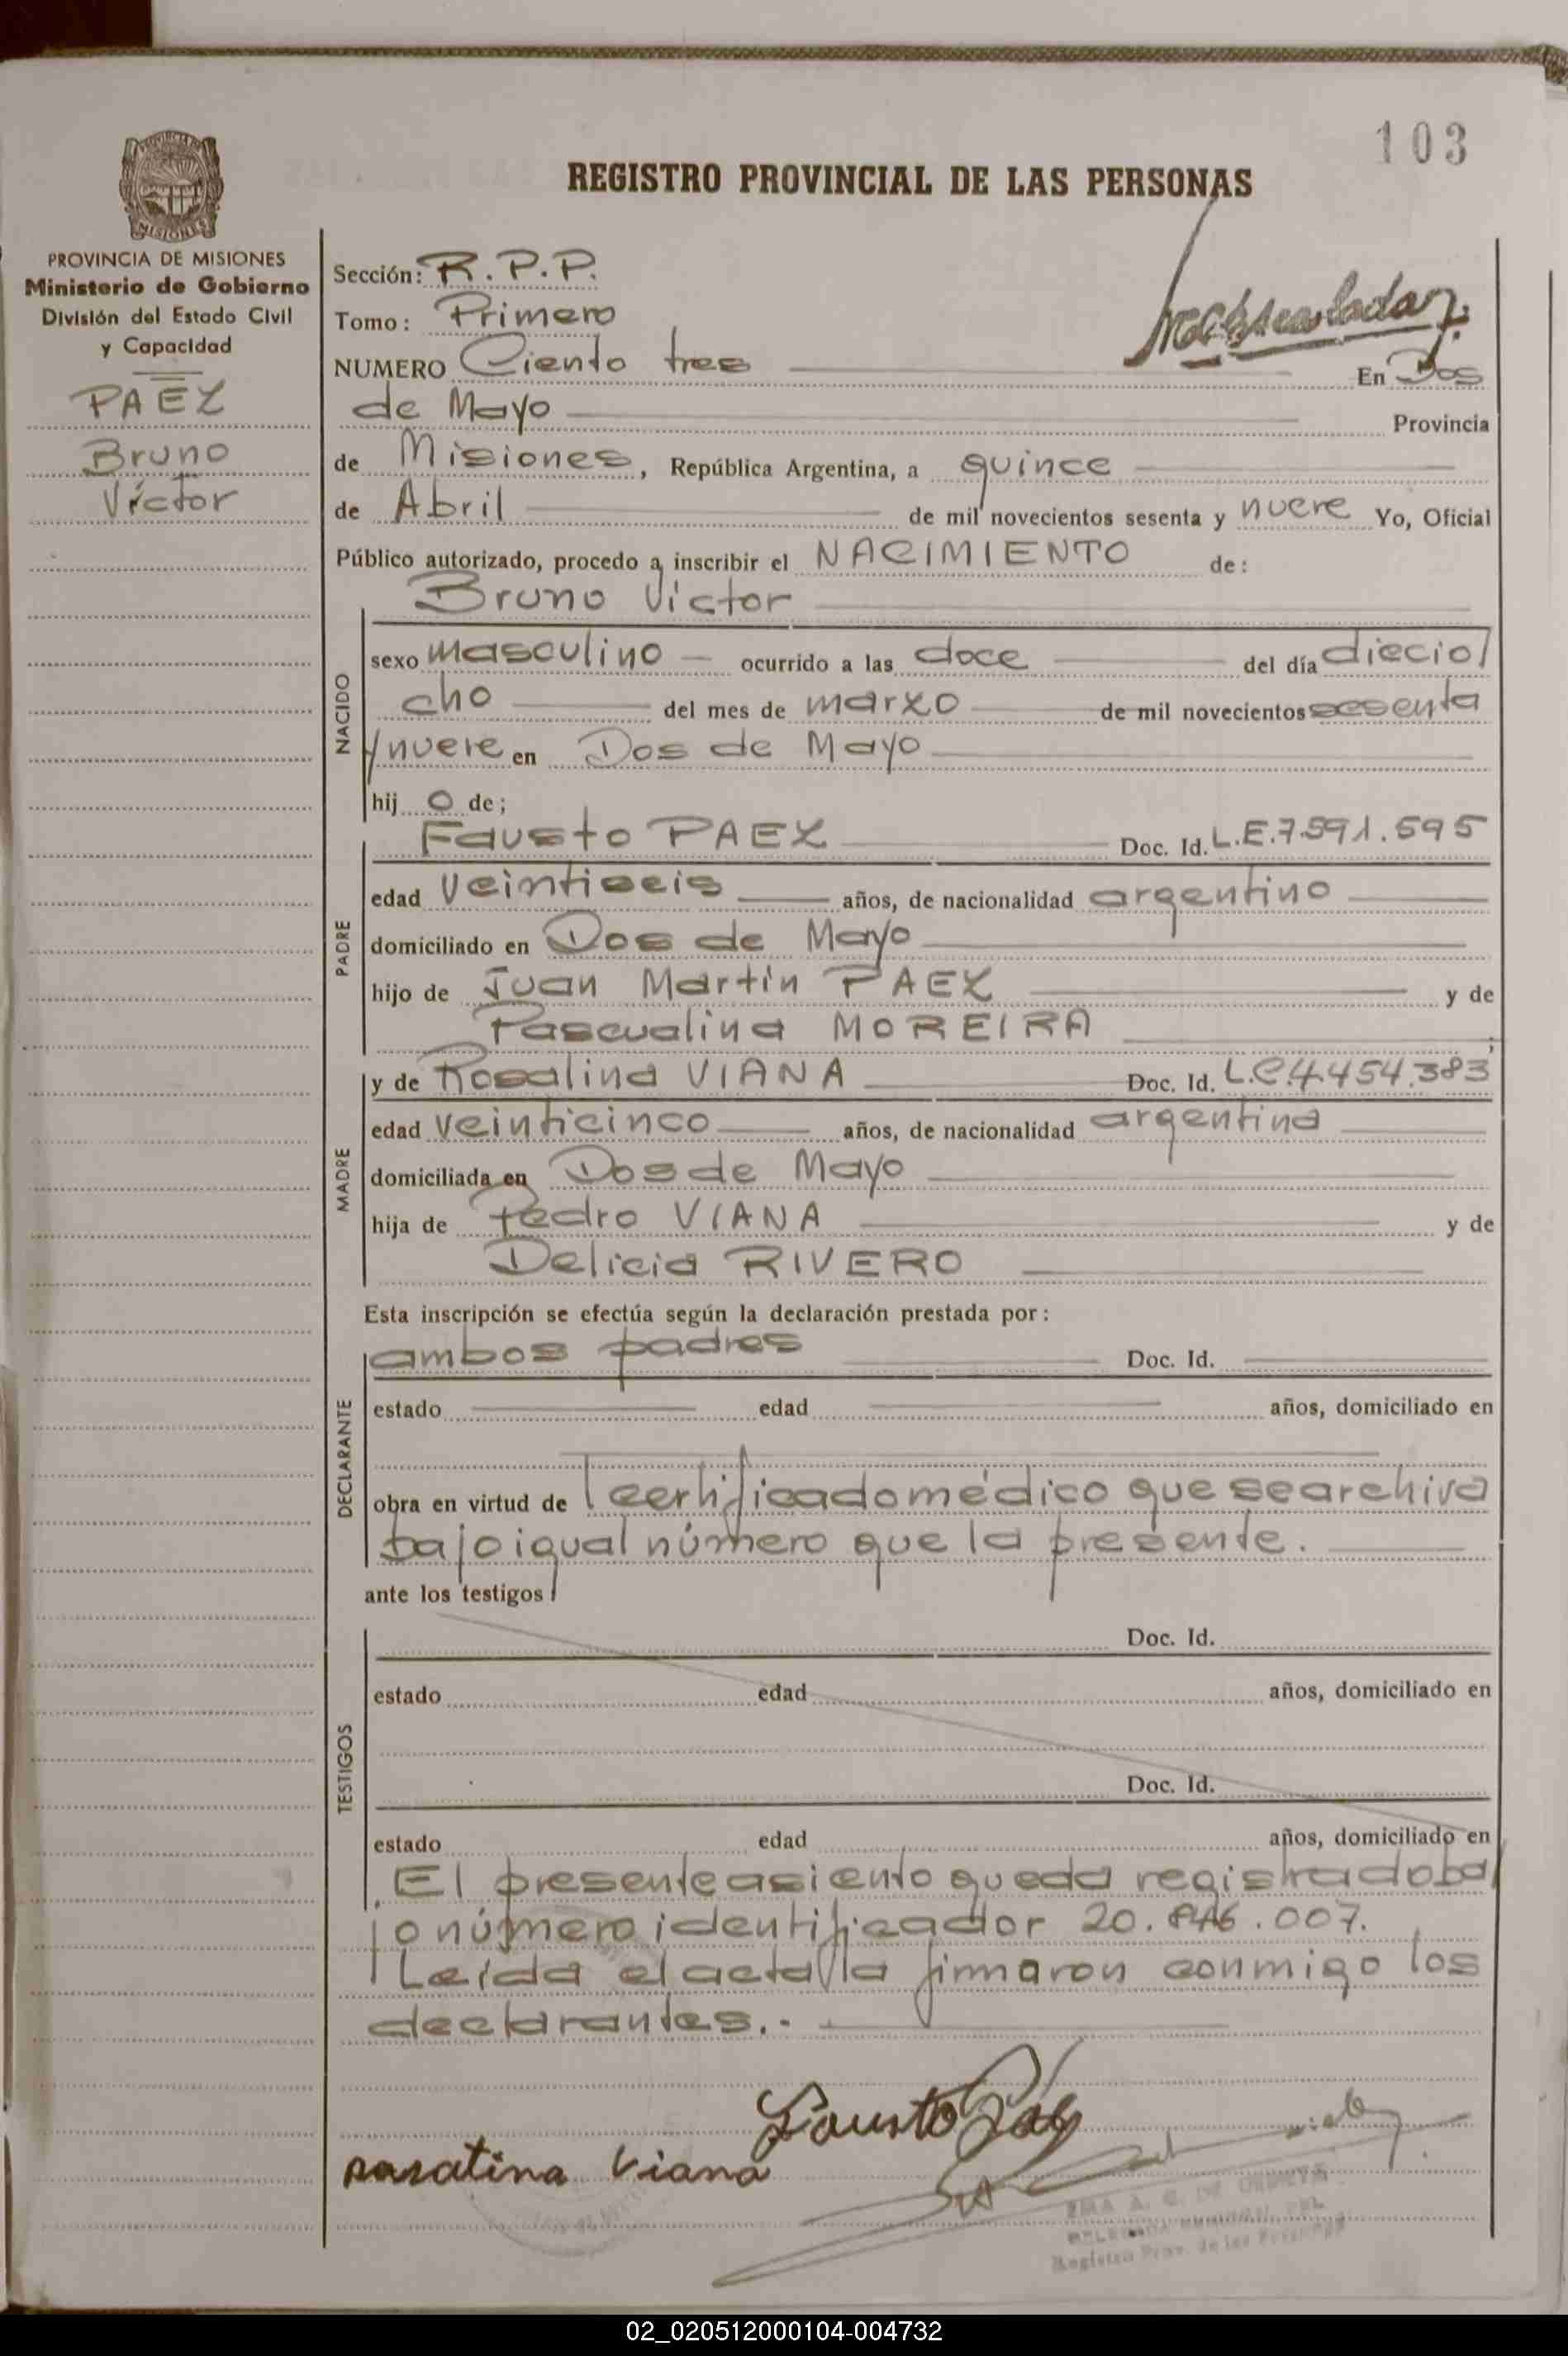 103
REGISTRO PROVINCIAL DE LAS PERSONAS
MISIONES
PROVINCIA DE MISIONES
Ministerio de Gobierno
División del Estado Civil
y Capacidad
PAEZ
Bruno
Víctor
Sección: R.P.P.
Tomo: Primero
NUMERO Ciento tres En Dos
de Mayo Provincia
de Misiones, República Argentina, a quince
de Abril de mil novecientos sesenta y nueve Yo, Oficial
Público autorizado, procedo a inscribir el NACIMIENTO de:
Bruno Víctor
NACIDO
sexo masculino ocurrido a las doce del día diecio/
cho del mes de marzo de mil novecientos sesenta
/nueve en Dos de Mayo
hij o de;
Fausto PAEZ Doc. Id. L.E.7.591.595
PADRE
edad veintiseis años, de nacionalidad argentino
domiciliado en Dos de Mayo
hijo de Juan Martín PAEZ y de
Pascualina MOREIRA ;
y de Rosalina VIANA Doc. Id. L.C.4.454.383
MADRE
edad veinticinco años, de nacionalidad argentina
domiciliada en Dos de Mayo
hija de Pedro VIANA y de
Delicia RIVERO
Esta inscripción se efectúa según la declaración prestada por:
ambos padres Doc. Id.
DECLARANTE
estado edad años, domiciliado en
obra en virtud de certificado médico que se archiva
bajo igual número que la presente.
ante los testigos
Doc. Id.
TESTIGOS
estado edad años, domiciliado en
Doc. Id.
estado edad años, domiciliado en
El presente asiento queda registrado ba/
jo número identificador 20.846.007.
Leída el acta/la firmaron conmigo los
declarantes.-
Fausto Páez
rosalina Viana
DELEGADA
Registro Prov. de las Personas
02_020512000104-004732